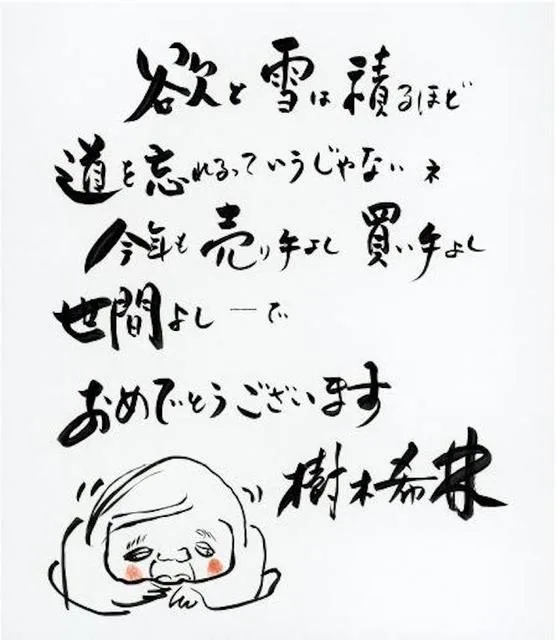 欲と雪は積るほど
道を忘れるっていうじゃないネ
今年も売り手よし買い手よし
世間よし―で
おめでとうございます
樹木希林